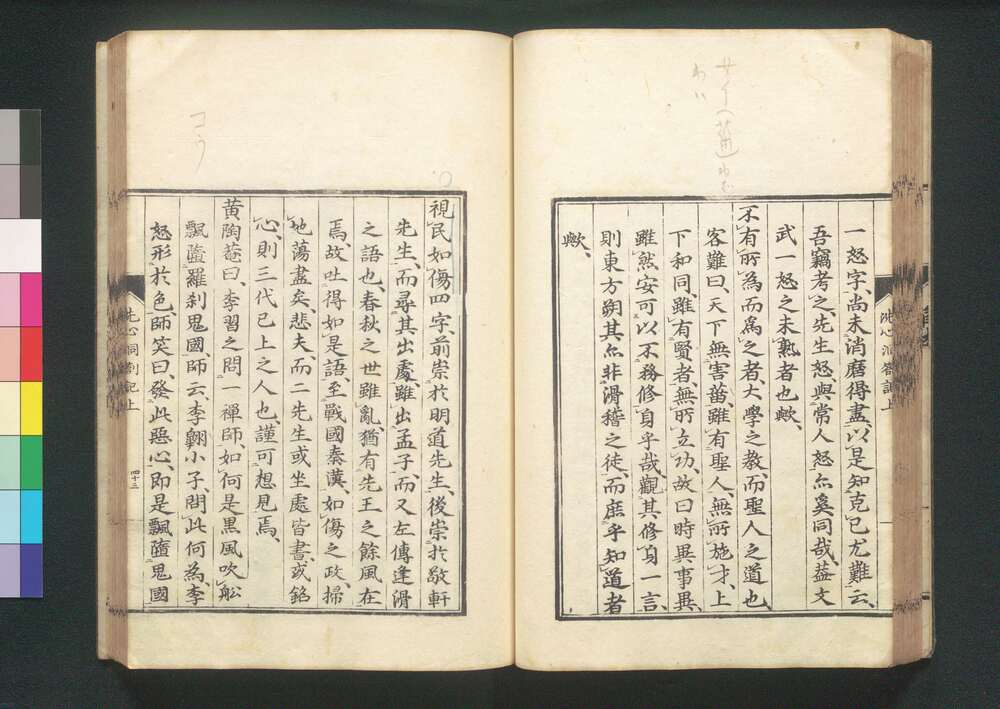 一怒字、尚未消磨得盡、以是知克己尤難云、
吾竊考之、先生怒與常人怒亦奚同哉、蓋文
武一怒之未熟者也歟、
不有所為而為之者、大學之教、而聖人之道也、
客難曰、天下無害菑、雖有聖人、無所施才、上
下和同、雖有賢者、無所立功、故曰時異事異、
雖然安可以不務修身乎哉、觀其修身一言、
則東方朔其亦非滑稽之徒、而庶乎知道者
歟、
視民如傷四字、前崇於明道先生、後崇於敬軒
先生、而尋其出處、雖出孟子、而又左傳逢滑
之語也、春秋之世雖亂、猶有先王之餘風在
焉、故吐得如是語、至戰國秦漢、如傷之政、掃
地蕩盡矣、悲夫、而二先生或坐處皆書、或銘
心、則三代已上之人也、謹可想見焉、
黄陶菴曰、李習之問一禪師、如何是黒風吹舩
飄墮羅刹鬼國、師云、李翺小子、問此何為、李
怒形於色、師笑曰、發此惡心、即是飄墮鬼國
洗心洞劄記上
四十三
コウ